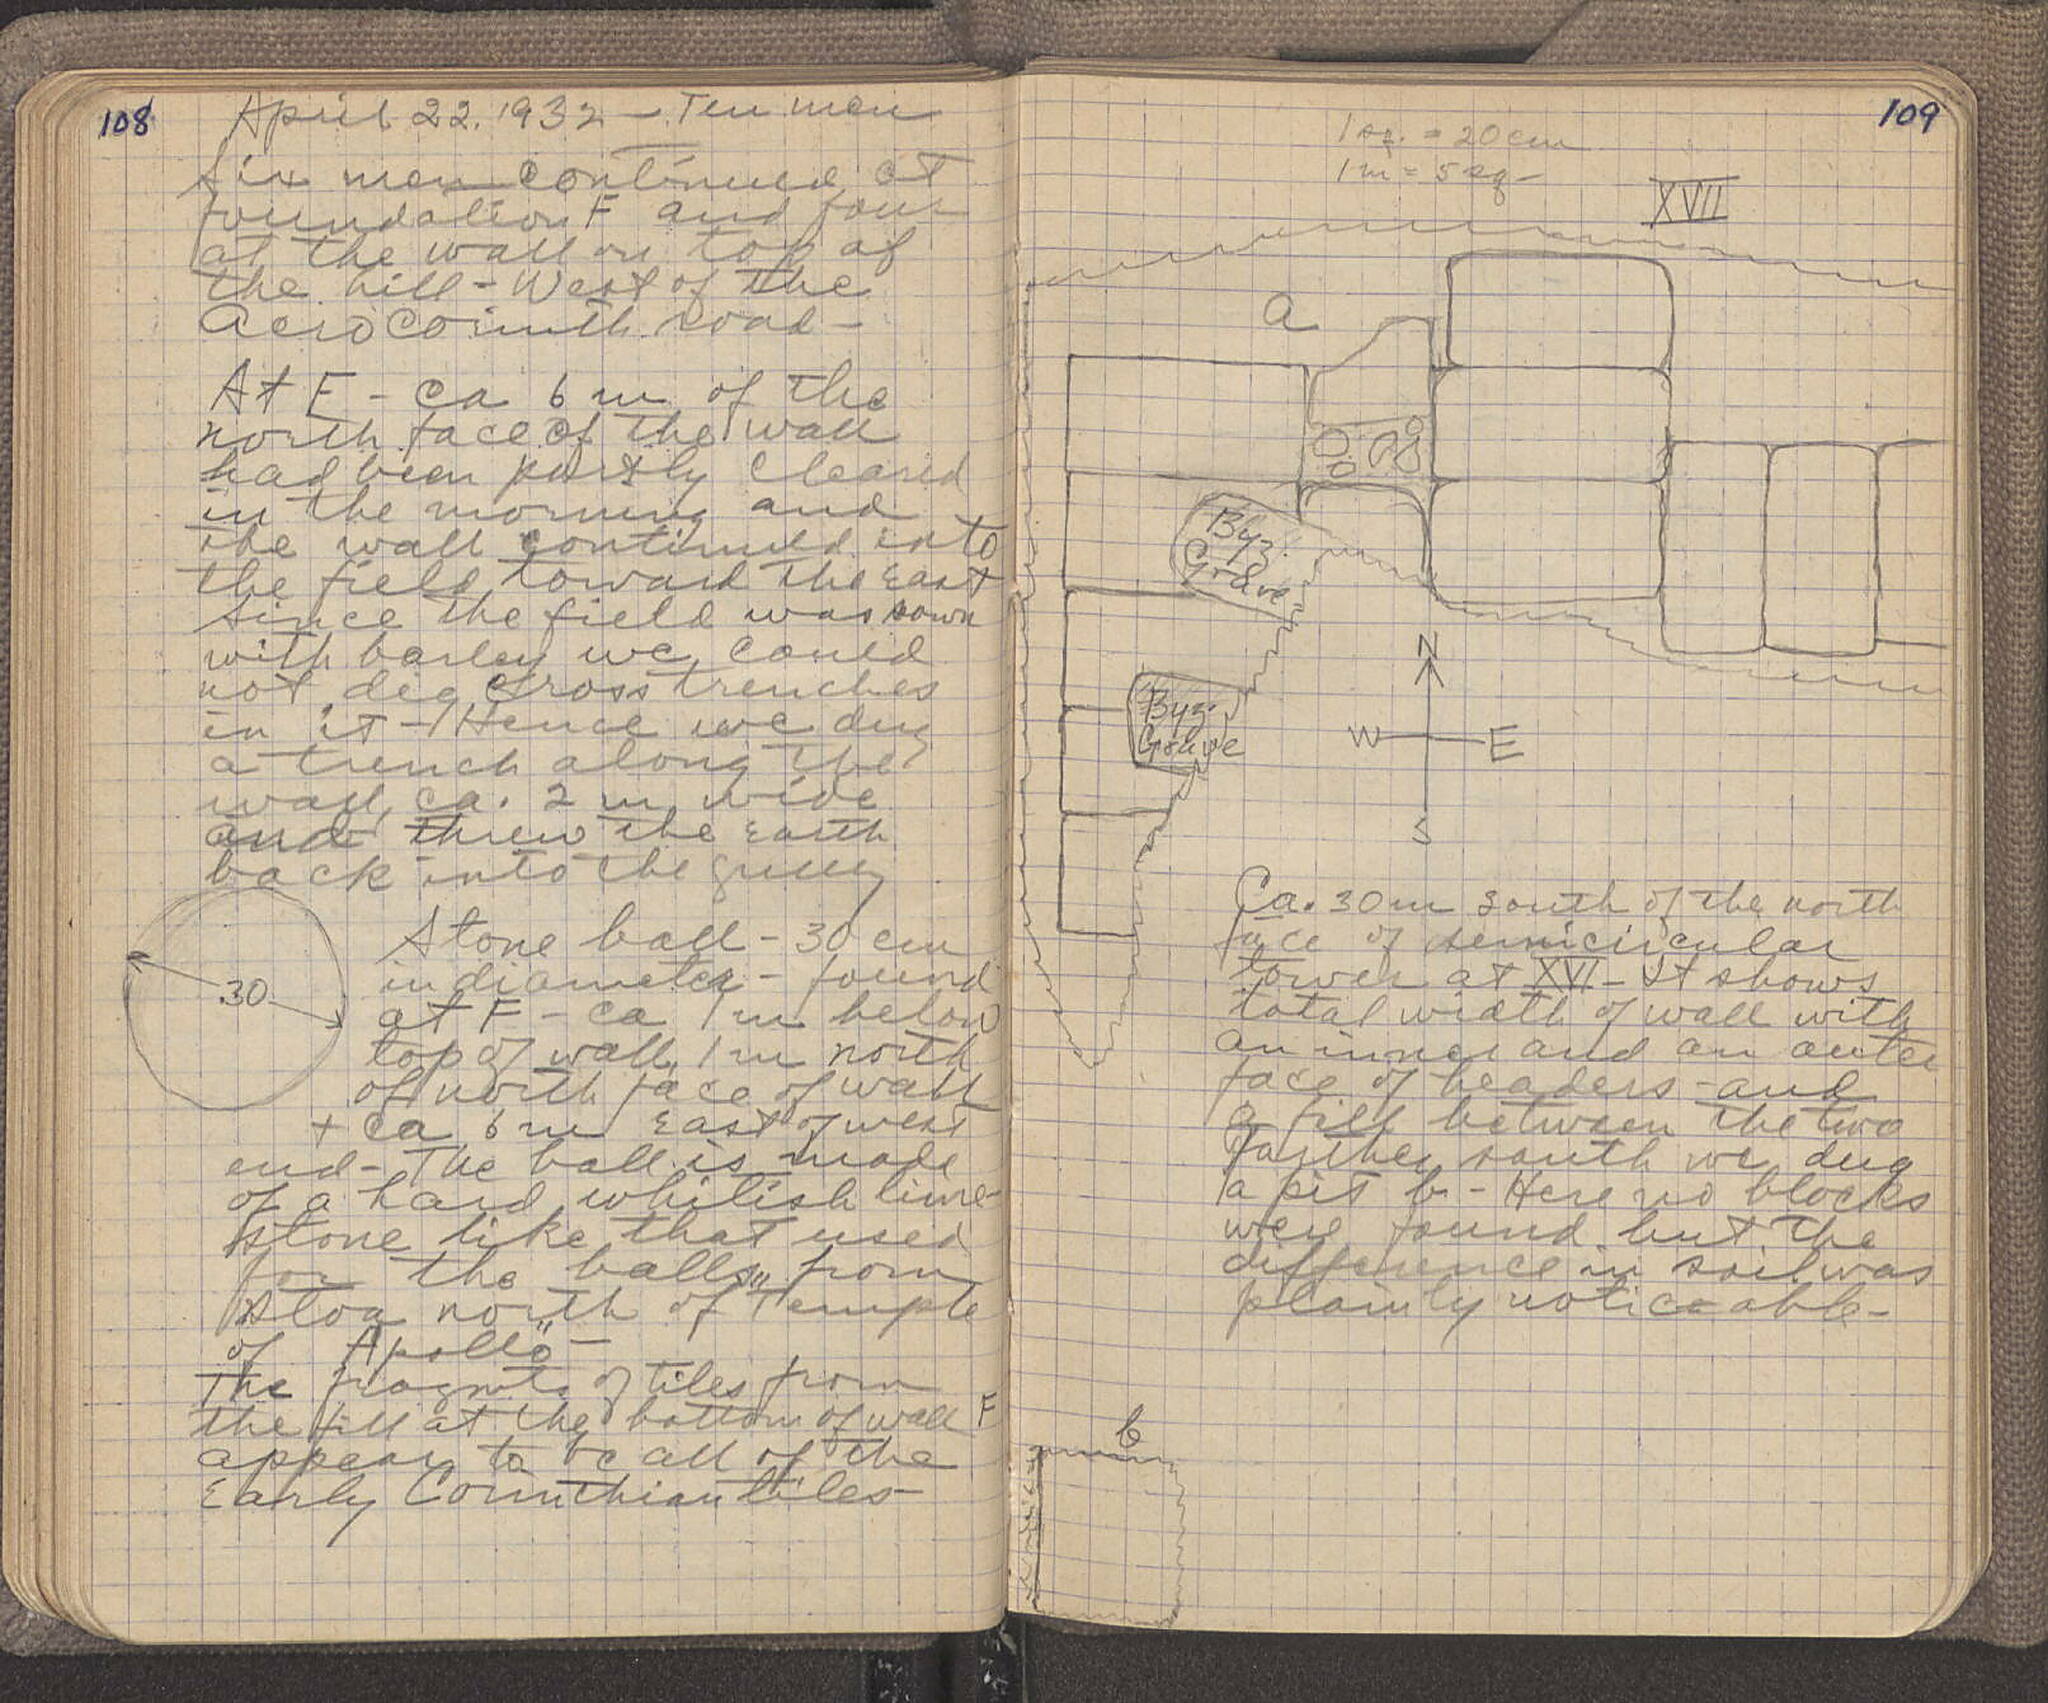 108
April 22. 1932 - Ten men
Six men continued at
foundation F and four
at the wall on top of
the hill - West of the
Acrocorinth road -
At F - ca 6 m of the
north face of the wall
had been partly cleared
in the morning and
the wall continued into
the field toward the East
since the field was sown
with barley we could
not dig cross trenches
in it - Hence we dug
a trench along the
wall, ca. 2 m wide
and threw the earth
back into the gully
30
Stone ball - 30 cm
in diameter - found
at F - ca 1 m below
top of wall, 1 m north
of north face of wall
+ ca 6 m East of west
end - The ball is made
of a hard whitish lime-
stone like that used
for the balls from
stoa north of "Temple
of Apollo" -
The fragmts of tiles from
the fill at the bottom of wall F
appear to be all of the
Early Corinthian tiles -
109
1 sq. = 20 cm
1 m = 5 sq -
XVII
a
Byz.
Grave
Byz.
Grave
N
W E
S
Ca. 30 m south of the north
face of semicircular
tower at XVI - It shows
total width of wall with
an inner and an outer
face of headers - and
a fill between the two
Farther south we dug
a pit b - Here no blocks
were found but the
difference in soil was
plainly noticeable -
b